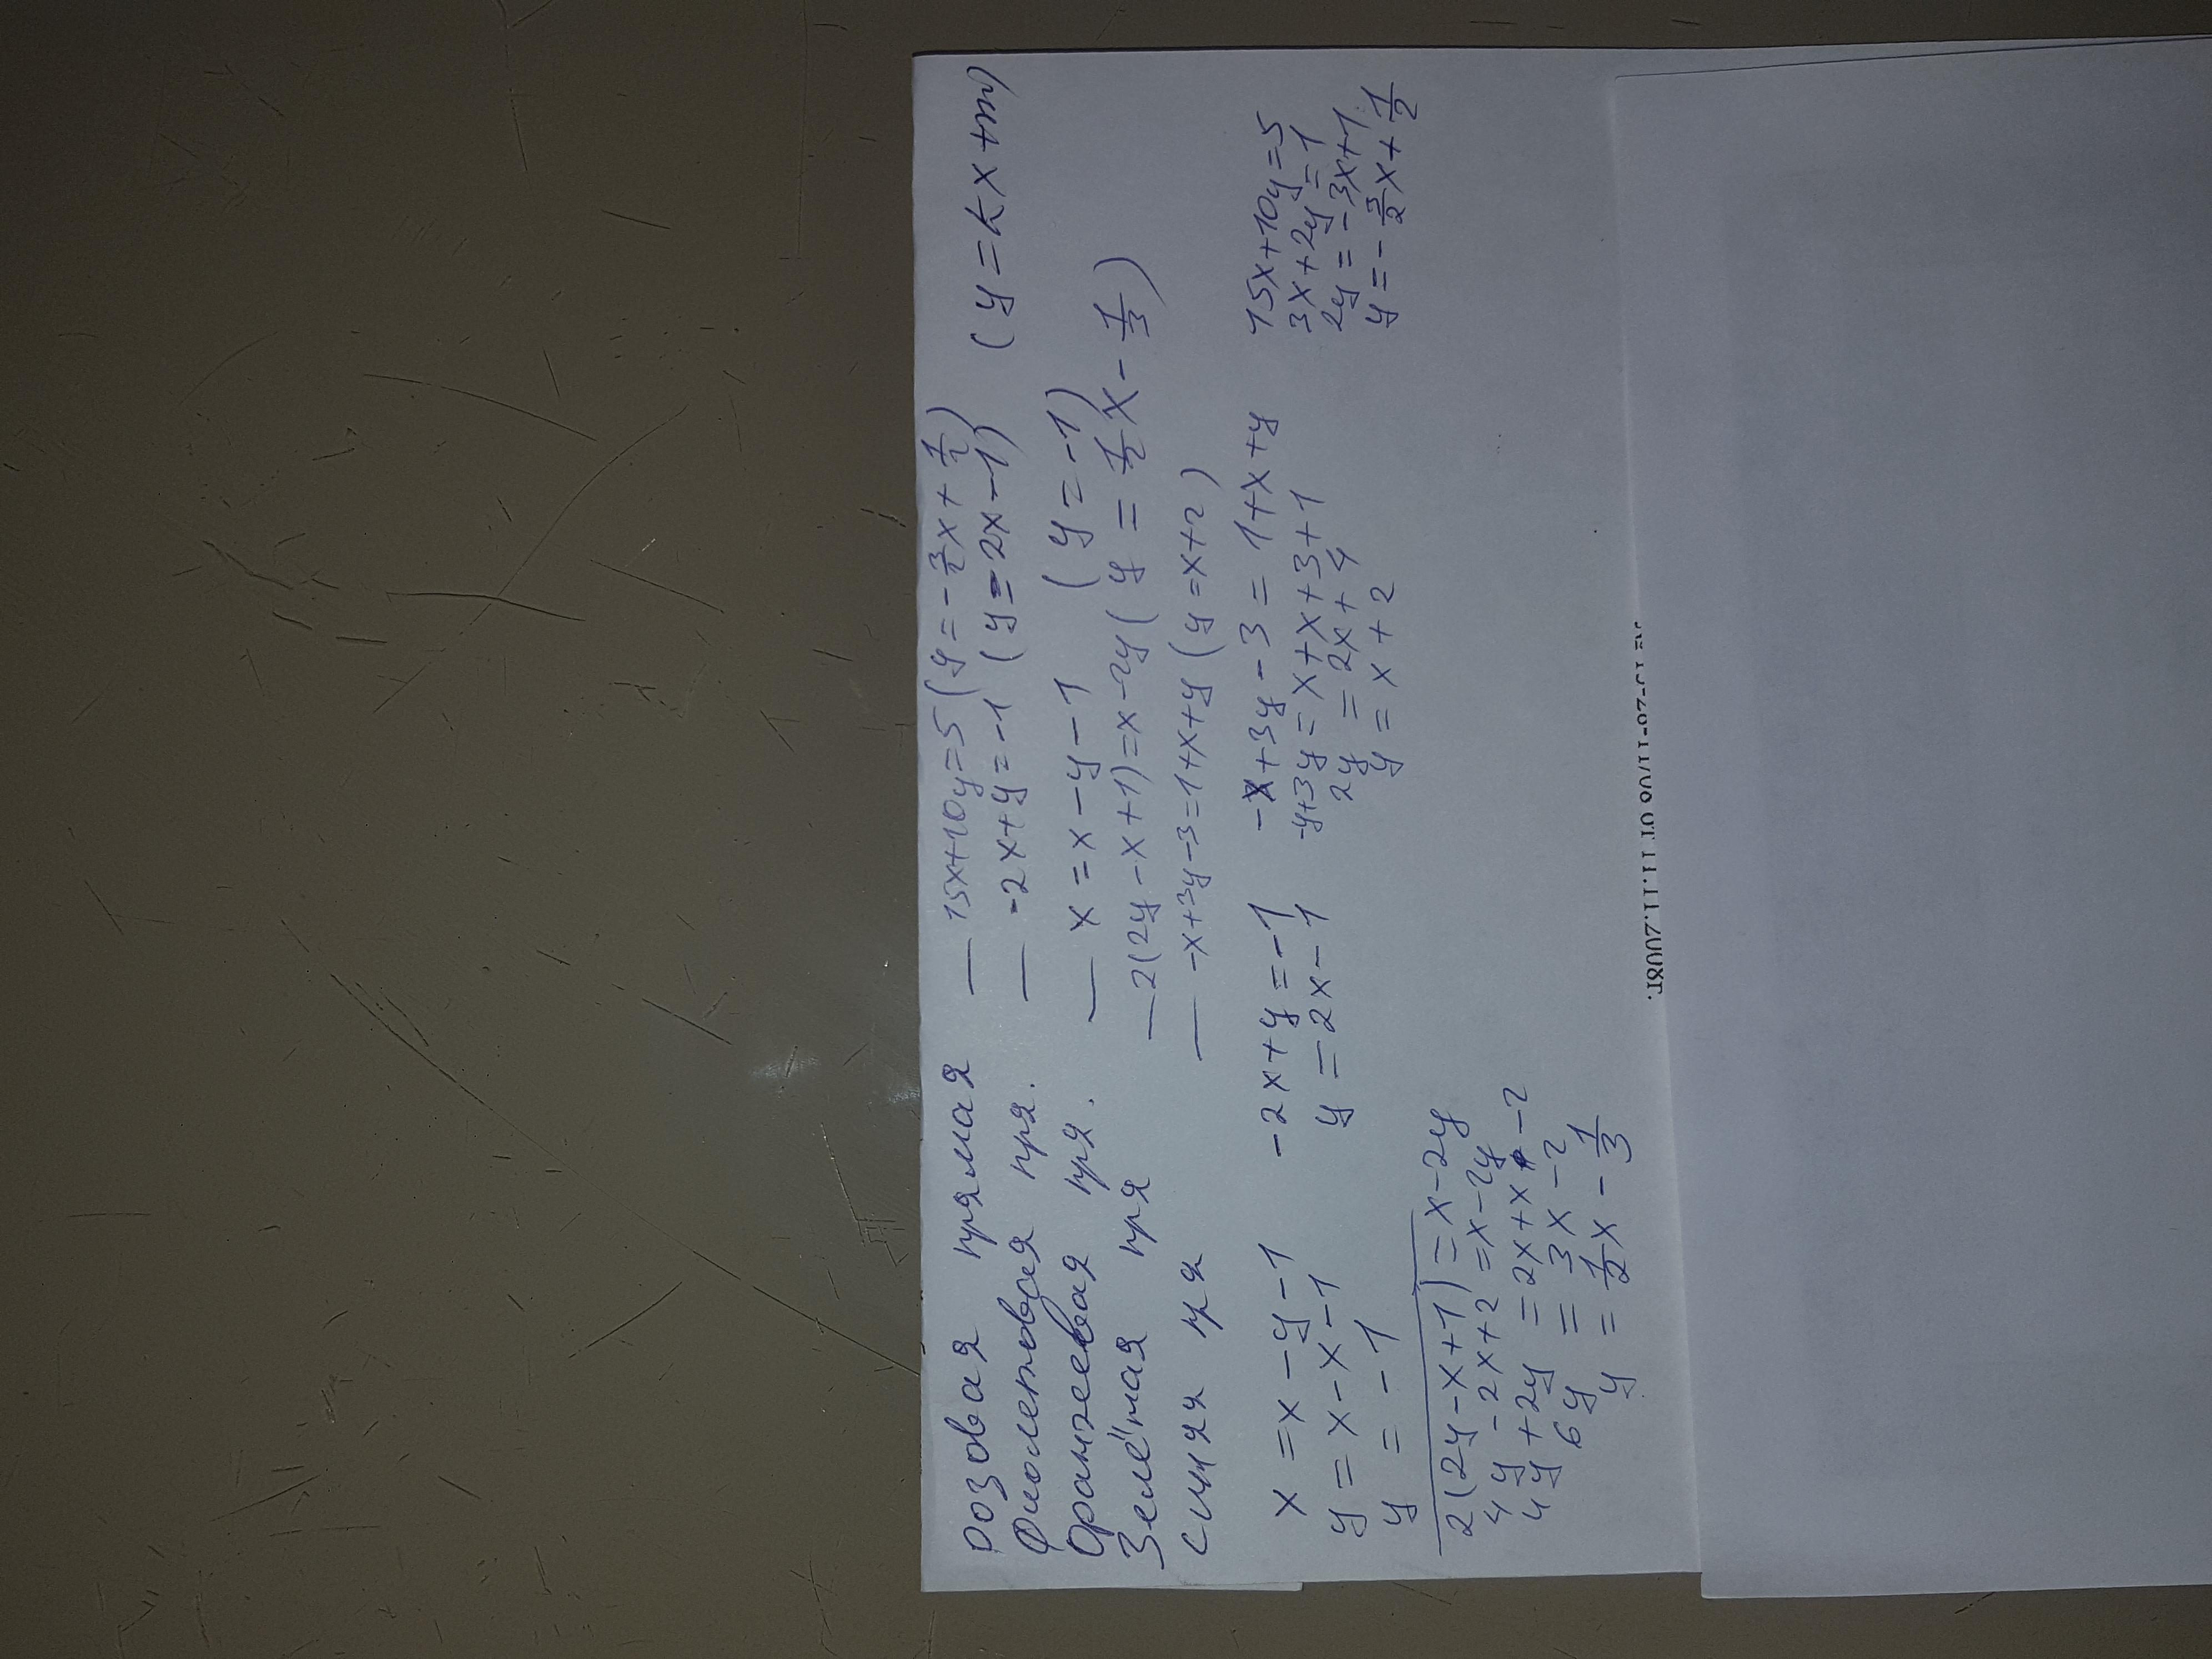 розовая прямая — 15x+10y=5 (y=-3/2x+1/2)
Фиолетовая пря. — -2x+y=-1 (y=2x-1) (y=kx+m)
Оранжевая пря. — x=x-y-1 (y=-1)
Зелёная пря — 2(2y-x+1)=x-2y (y=1/2x-1/3)
синяя пря — -x+3y-3=1+x+y (y=x+2)
x=x-y-1
y=x-x-1
y=-1
-2x+y=-1
y=2x-1
-x+3y-3=1+x+y
-y+3y=x+x+3+1
2y=2x+4
y=x+2
15x+10y=5
3x+2y=1
2y=-3x+1
y=-3/2x+1/2
2(2y-x+1)=x-2y
4y-2x+2=x-2y
4y+2y=2x+x-2
6y=3x-2
y=1/2x-1/3